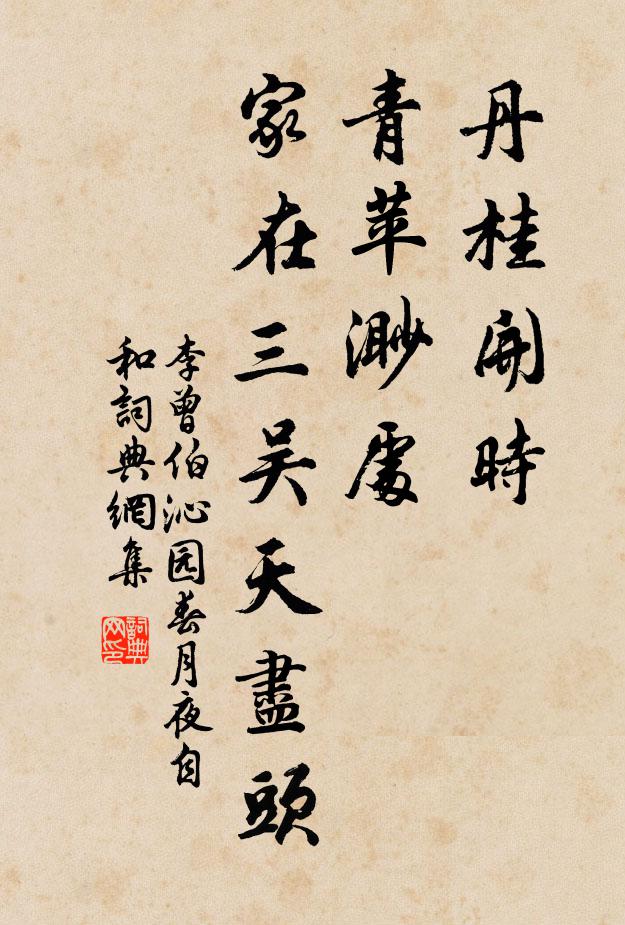 丹桂開時
青苹渺處
家在三吴天盡頭
李曾伯沁园春月夜自
和詞典網集
詞典
网印